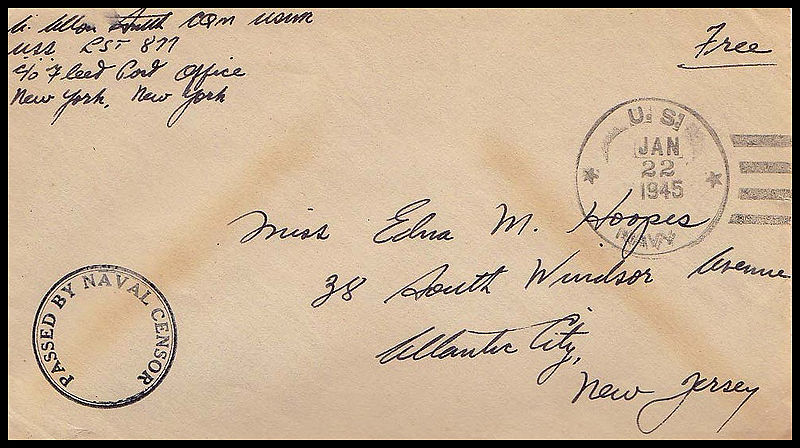 Allan Smith CQM USNR
USS LST 877
c/o Fleed Post Office
New York, New York
Free
U.S.
JAN
22
1945
NAVY
Miss Edna M. Hoopes
38 South Windsor Avenue
Atlantic City,
New Jersey
PASSED BY NAVAL CENSOR